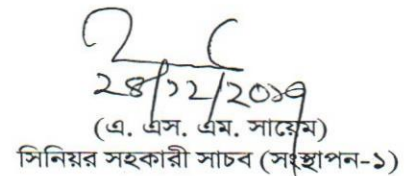 ২৪/১২/২০১৭
(এ. এস. এম. সায়েম)
সিনিয়র সহকারী সচিব (সংস্থাপন-১)